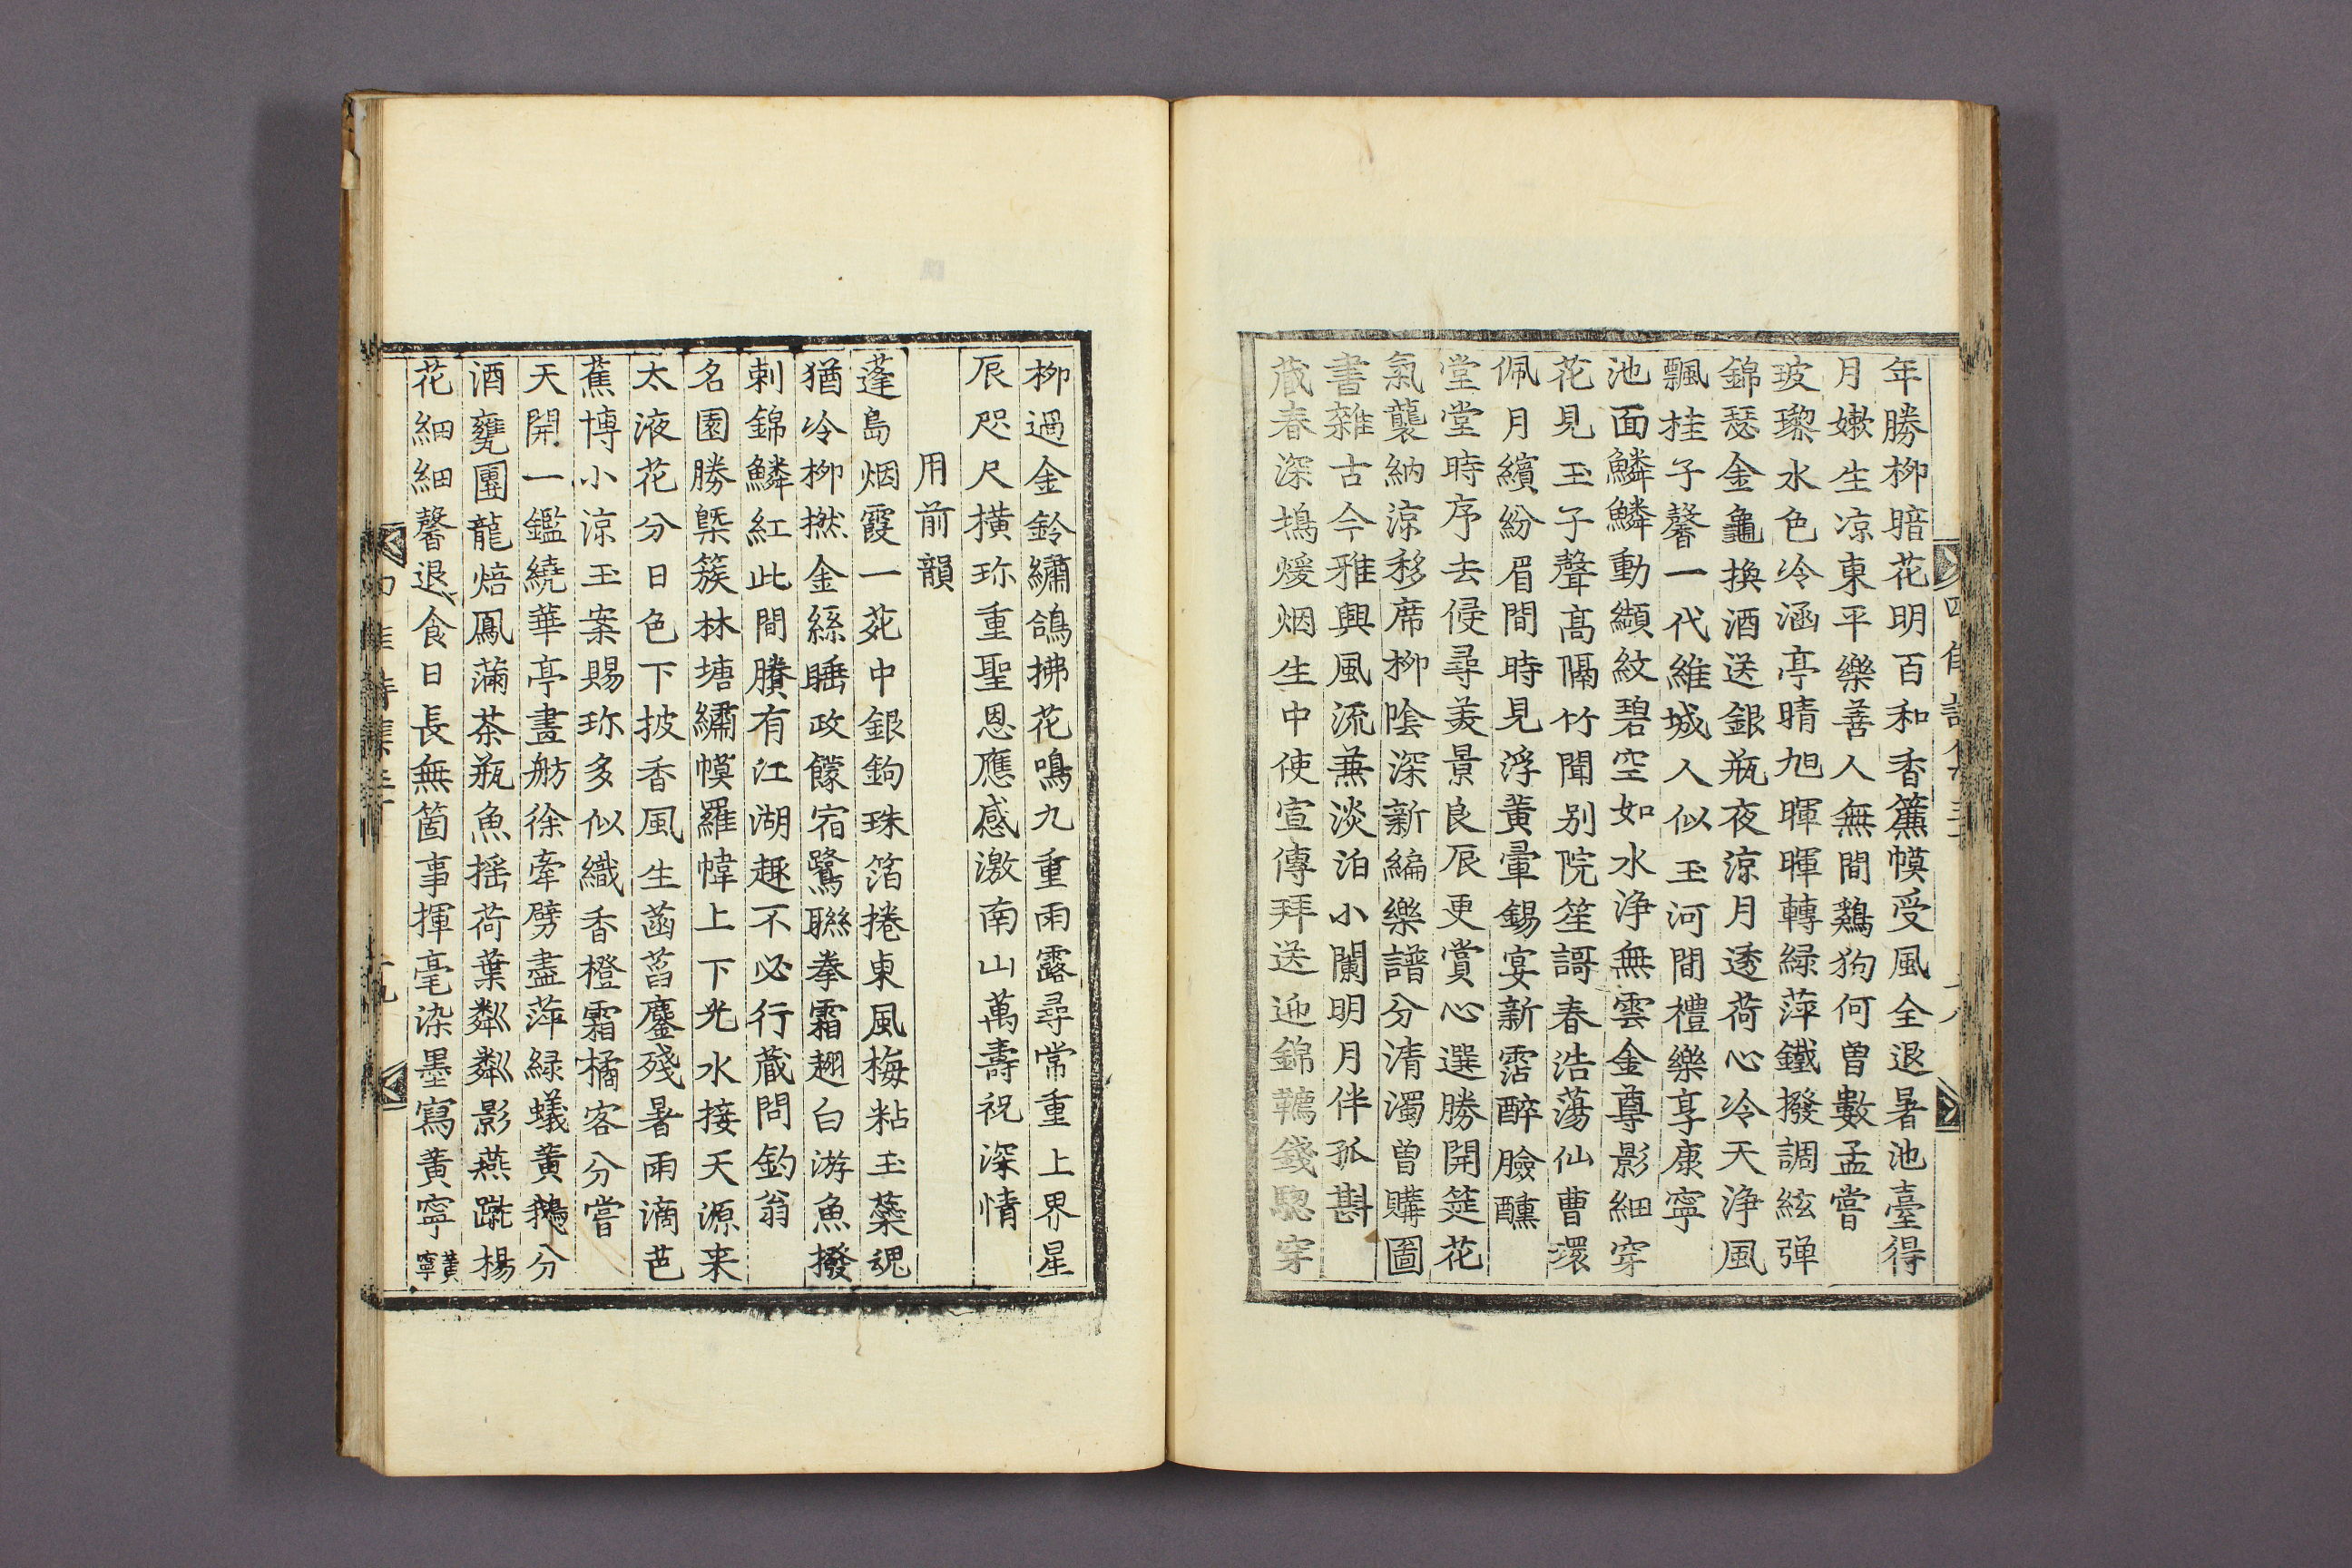 年勝柳暗花明百和香簾幙受風全退暑池臺得
月嫰生凉東平樂善人無間鷄狗何曾數孟嘗
玻瓈水色冷涵亭晴旭暉暉轉緑萍鐵撥調絃弹
錦瑟金龜換酒送銀瓶夜涼月透荷心冷天浄風
飄桂子馨一代維城人似玉河間禮樂享康寧
池面鱗鱗動纈紋碧空如水浄無雲金尊影細穿
花見玉子聲髙隔竹聞別院笙謌春浩蕩仙曹環
佩月繽紛眉間時見浮黄暈錫宴新霑醉臉醺
堂堂時序去侵尋羙景良辰更賞心選勝開筵花
氣襲納涼移席柳陰深新編樂譜分清濁曾購圖
書雜古今雅興風流兼淡泊小闌明月伴孤斟
蔵春深塢煖烟生中使宣傳拜送迎錦韉錢騘穿
柳過金鈴繡鴿拂花鳴九重雨露尋常重上界星
辰咫尺横珎重聖恩應感激南山萬壽祝深情
用前韻
蓬島烟霞一苑中銀鉤珠箔捲東風梅粘玉蘂魂
猶冷柳撚金絲睡政饛宿鷺聯拳霜翅白游魚撥
剌錦鱗紅此間賸有江湖趣不必行蔵問釣翁
名園勝槩簇林塘繡幙羅幃上下光水接天源来
太液花分日色下披香風生菡萏鏖殘暑雨滴芭
蕉博小涼玉案賜珎多似織香橙霜橘客分嘗
天開一鑑繞華亭畫舫徐牽劈盡萍緑蟻黄鵝分
酒甕團龍焙鳳滿茶瓶魚揺荷葉粼粼影燕蹴楊
花細細馨退食日長無箇事揮毫染墨寫黄寧黄寧